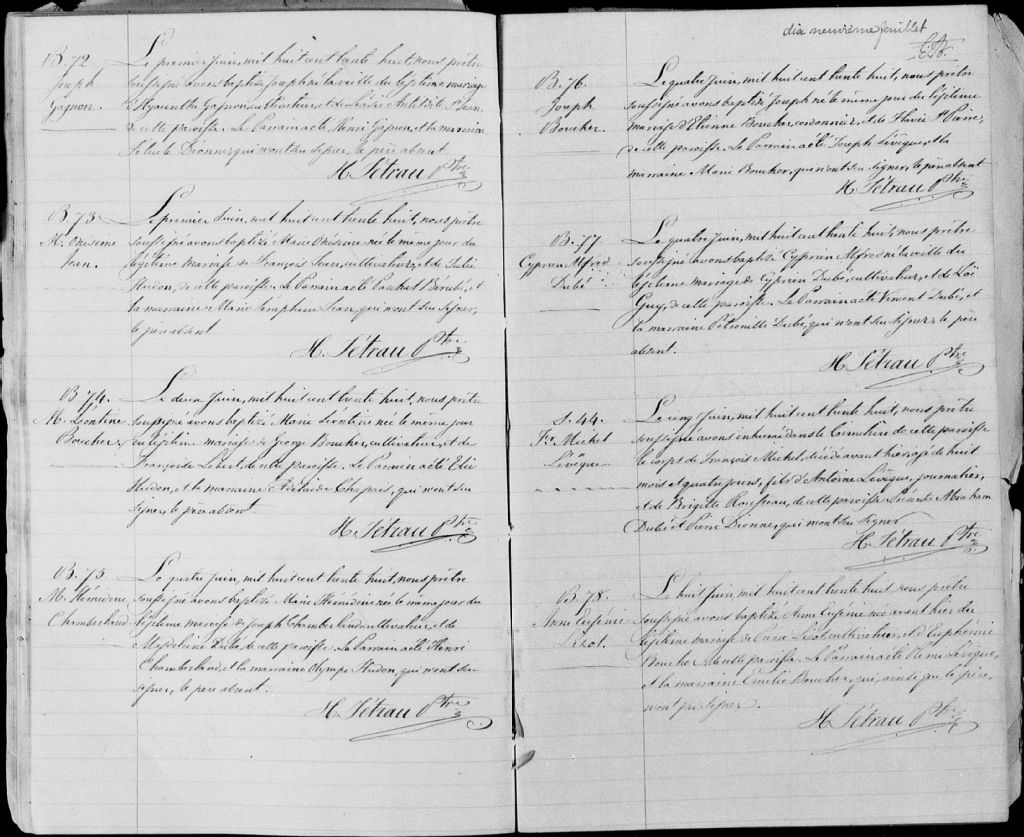 B. 72.
Joseph
Gagnon.
Le premier Juin, mil huit cent trente huit, nous prêtre
soussigné avons baptisé Joseph né la veille du légitime mariage
d'Hyacinthe Gagnon, cultivateur, et de St Jean,
de cette paroisse. Le Parrain a été Henri Gagnon, et la marraine
Dionne, qui n'ont su signer, le père absent
H. Tétrau Ptre
B. 73.
M. Onésime
Jean.
Le premier Juin, mil huit cent trente huit, nous prêtre
soussigné avons baptisé Marie Onésime née le même jour du
légitime mariage de François Jean, cultivateur, et de Julie
Hudon, de cette paroisse. Le Parrain a été Paschal Bérubé, et
la marraine Marie Séraphine Jean, qui n'ont su signer,
le père absent
H. Tétrau Ptre
B. 74.
M. Léontine
Boucher.
Le deux Juin, mil huit cent trente huit, nous prêtre
soussigné avons baptisé Marie Léontine née le même jour
du légitime mariage de George Boucher, cultivateur, et de
Françoise Lebert de cette paroisse. Le Parrain a été Elie
Hudon, et la marraine Adélaïde Chapais, qui n'ont su
signer, le père absent.
H. Tétrau Ptre
B. 75.
M. Hémédine
Chamberland
Le quatre Juin, mil huit cent trente huit, nous prêtre
soussigné avons baptisé Marie Hémédine née le même jour du
légitime mariage de Joseph Chamberland cultivateur, et de
Madeleine Dubé de cette paroisse. Le Parrain a été Henri
Chamberland, et la marraine Olympe Hudon, qui n'ont su
signer, le père absent.
H. Tétrau Ptre
dix neuvième feuillet
B. 76.
Joseph
Boucher.
Le quatre Juin, mil huit cent trente huit, nous prêtre
soussigné avons baptisé Joseph né le même jour du légitime
mariage d'Etienne Boucher, cordonnier, et de Flavie St Pierre,
de cette paroisse. Le Parrain a été Joseph Lévêque, et la
marraine Marie Boucher, qui n'ont su signer, le père absent
H. Tétrau Ptre
B. 77
Cyprien Alfred
Dubé
Le quatre Juin, mil huit cent trente huit, nous prêtre
soussigné avons baptisé Cyprien Alfred né la veille du
légitime mariage de Cyprien Dubé, cultivateur, et de Zoé
Guy, de cette paroisse. Le Parrain a été Vincent Dubé, et
la marraine Pétronille Dubé, qui n'ont su signer, le père
absent.
H. Tétrau Ptre
S. 44.
Fr. Michel
Lévêque
Le cinq Juin, mil huit cent trente huit, nous prêtre
soussigné avons inhumé dans le Cimetière de cette paroisse
le corps de François Michel, décédé avant hier agé de huit
mois et quatre jours, fils d'Antoine Lévêque, journalier,
et de Brigitte Rousseau, de cette paroisse. Présents Abraham
Dubé et Pierre Dionne, qui n'ont su signer
H. Tétrau Ptre
B. 78.
Anne Eugénie
Lizot.
Le huit Juin, mil huit cent trente huit, nous prêtre
soussigné avons baptisé Anne Eugénie née avant hier du
légitime mariage de Pierre Lizot, cultivateur, et d'Euphémie
Boucher de cette paroisse. Le Parrain a été Rémi Lévêque,
et la marraine Emélie Boucher, qui, ainsi que le père,
n'ont pu signer.
H. Tétrau Ptre